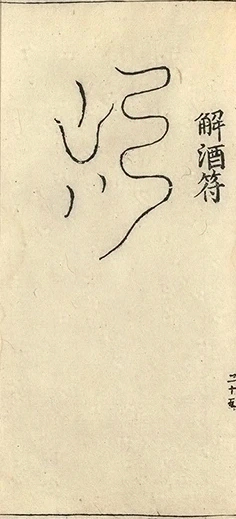 解酒符
二十五